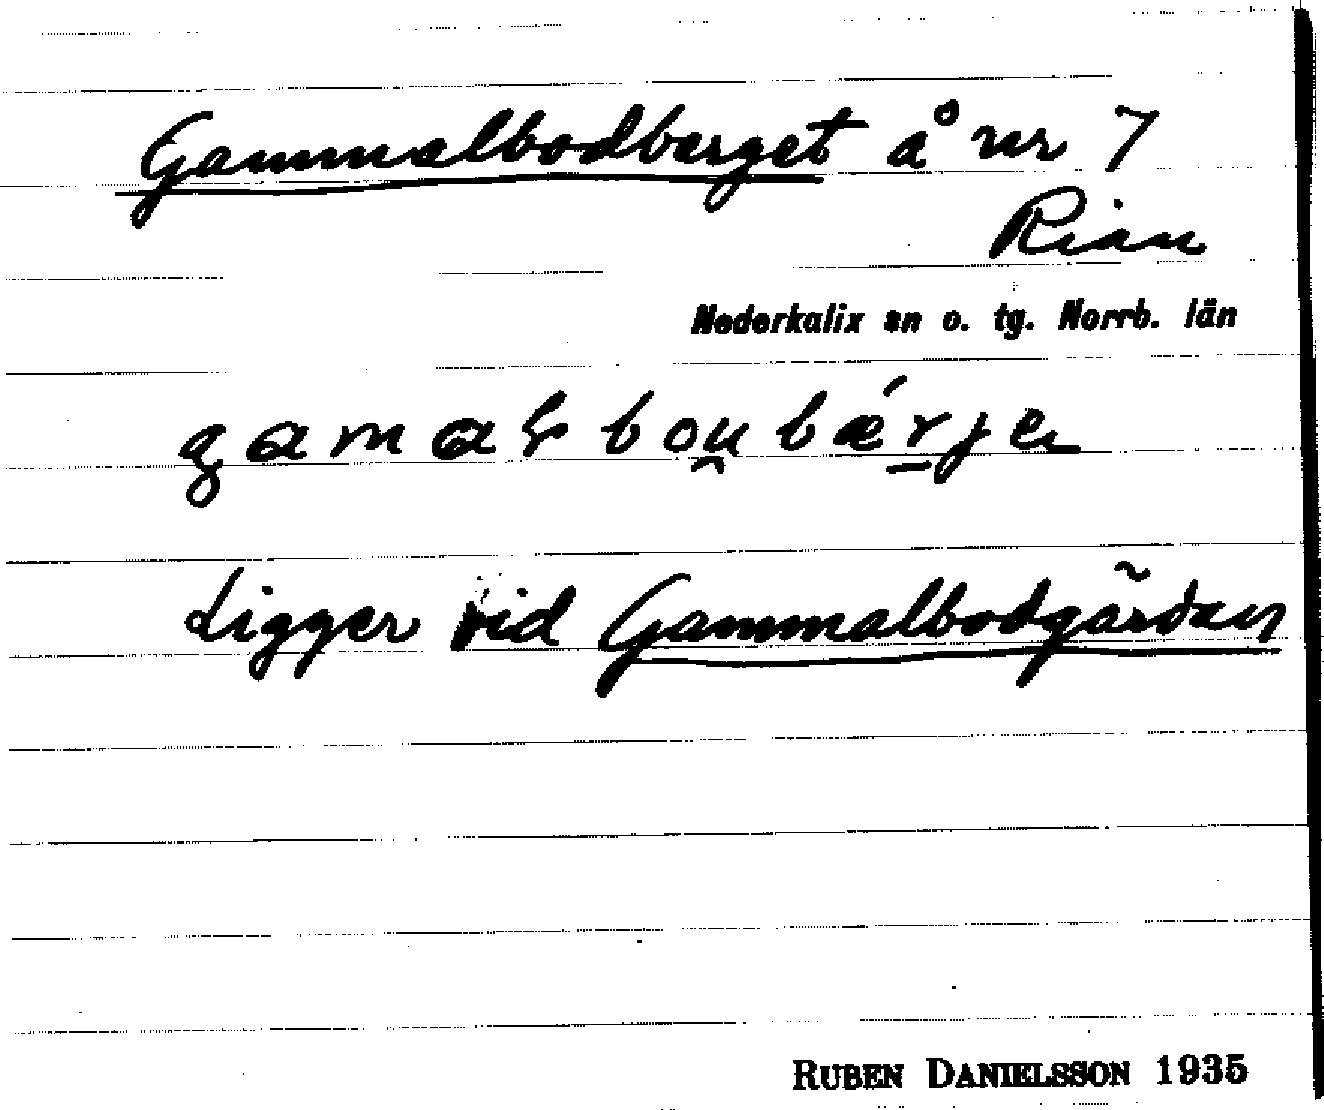 Gammalbodberget å nr 7
Rian
Nederkalix sn o. tg. Norrb. län
Ligger vid Gammalbodgården
RUBEN DANIELSSON 1935